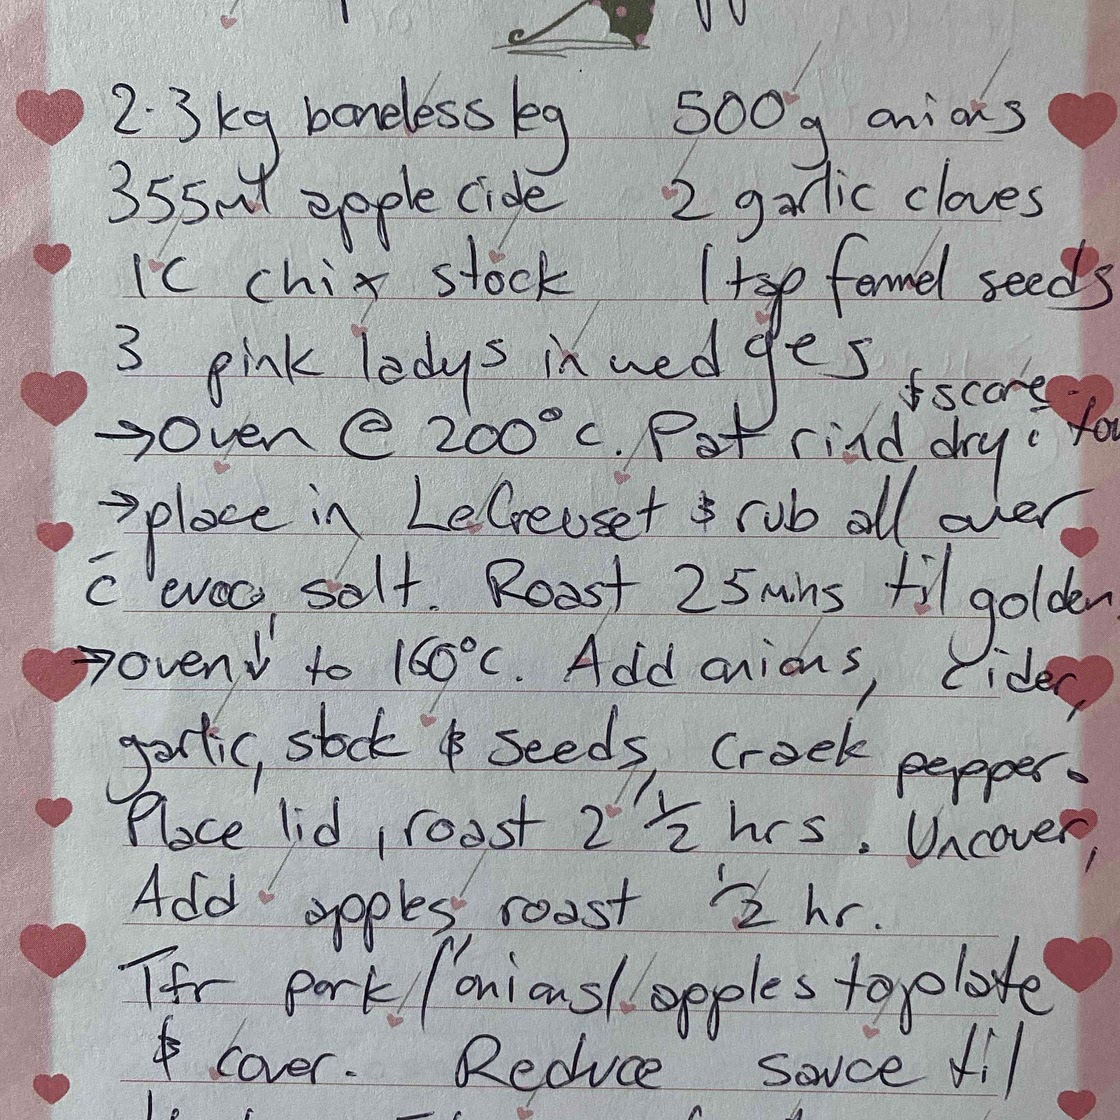 2.3kg boneless leg 500g onions
355ml apple cide 2 garlic cloves
1C chix stock 1 tsp fennel seeds
3 pink ladys in wedges
& score.
→Oven @ 200°c. Pat rind dry
→place in LeCreuset & rub all over
c̄ evoo, salt. Roast 25mins til golden
→oven↓ to 160°c. Add onions, cider,
garlic, stock & seeds, crack pepper.
Place lid, roast 2 1/2 hrs. Uncover,
Add apples roast 1/2 hr.
Tfr pork/onions/apples to plate
& cover. Reduce sauce til